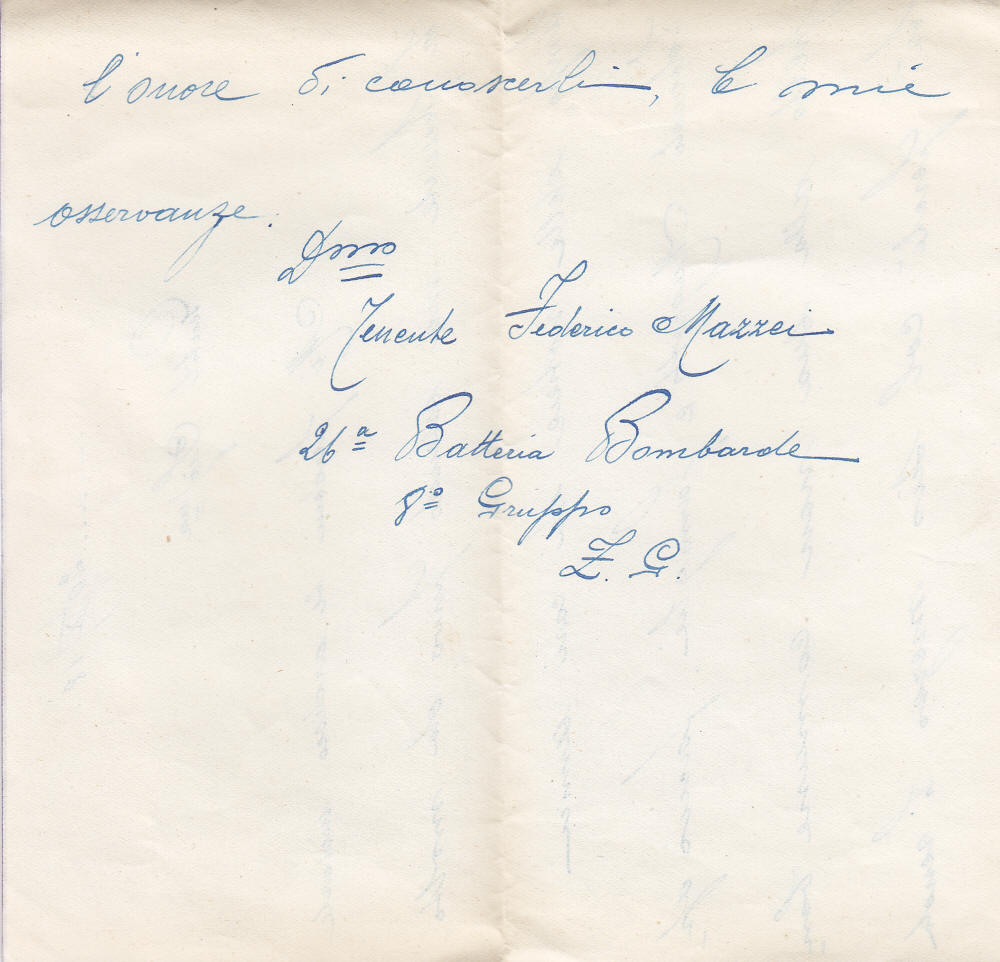 l'onore di conoscerli, le mie
osservanze.
Dmo
Tenente Federico Mazzei
26ª Batteria Bombarde
8º Gruppo
Z. G.